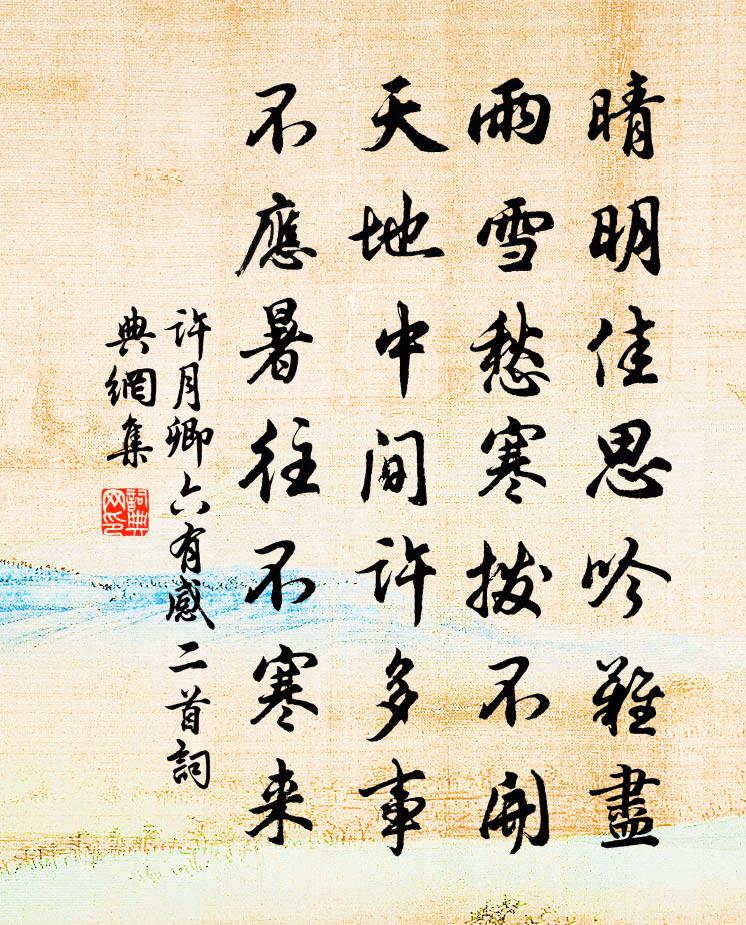 晴明佳思吟難盡
雨雪愁寒撥不開
天地中間許多事
不應暑往不寒来
許月卿六有感二首詞
典網集
詞典網印